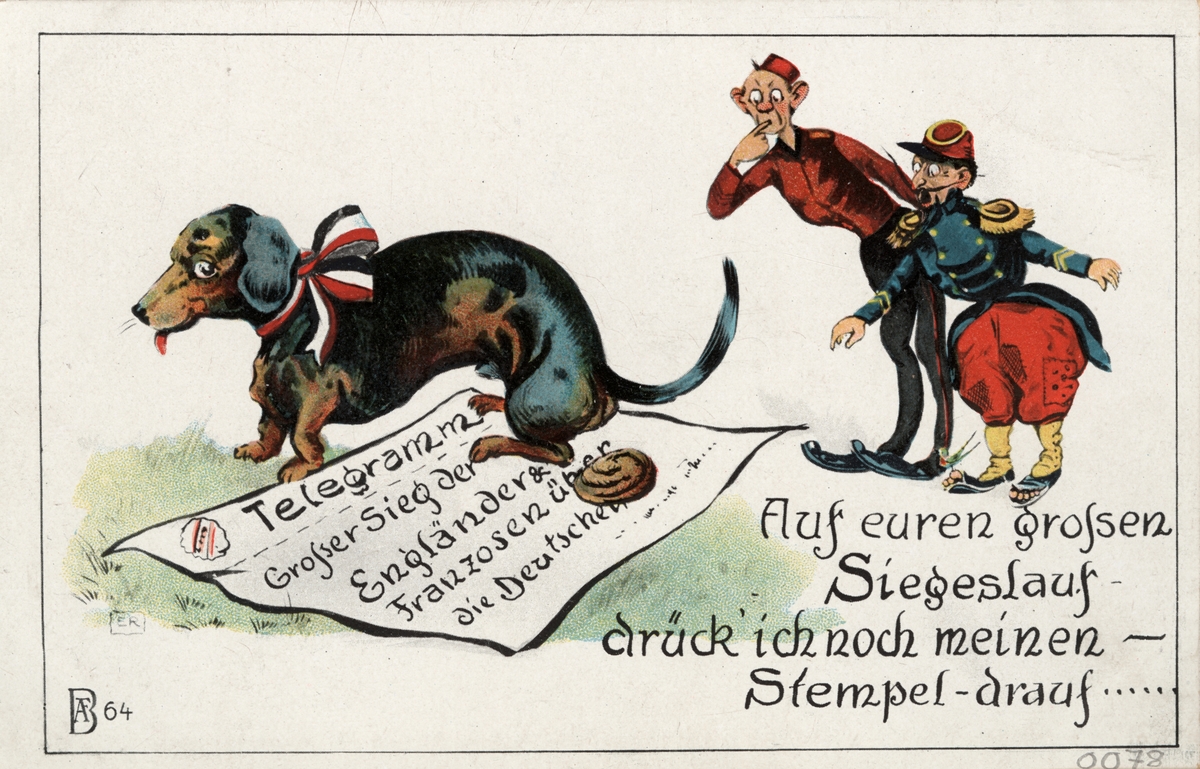 Telegramm
Großer Sieg der
Engländer &
Franzosen über
die Deutschen
Auf euren großen
Siegeslauf-
drück' ich noch meinen —
Stempel-drauf......
ER
64
0078